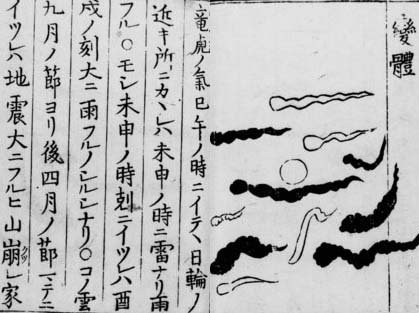 變體
竜虎ノ氣巳午ノ時ニイテヽ日輪ノ
近キ所ニカヽレハ未申ノ時ニ雷ナリ雨
フル○モシ未申ノ時剋ニイツレハ酉
戌ノ刻大ニ雨フルノシルシナリ○コノ雲
九月ノ節ヨリ後四月ノ節マテニ
イツレハ地震大ニフルヒ山崩レ家